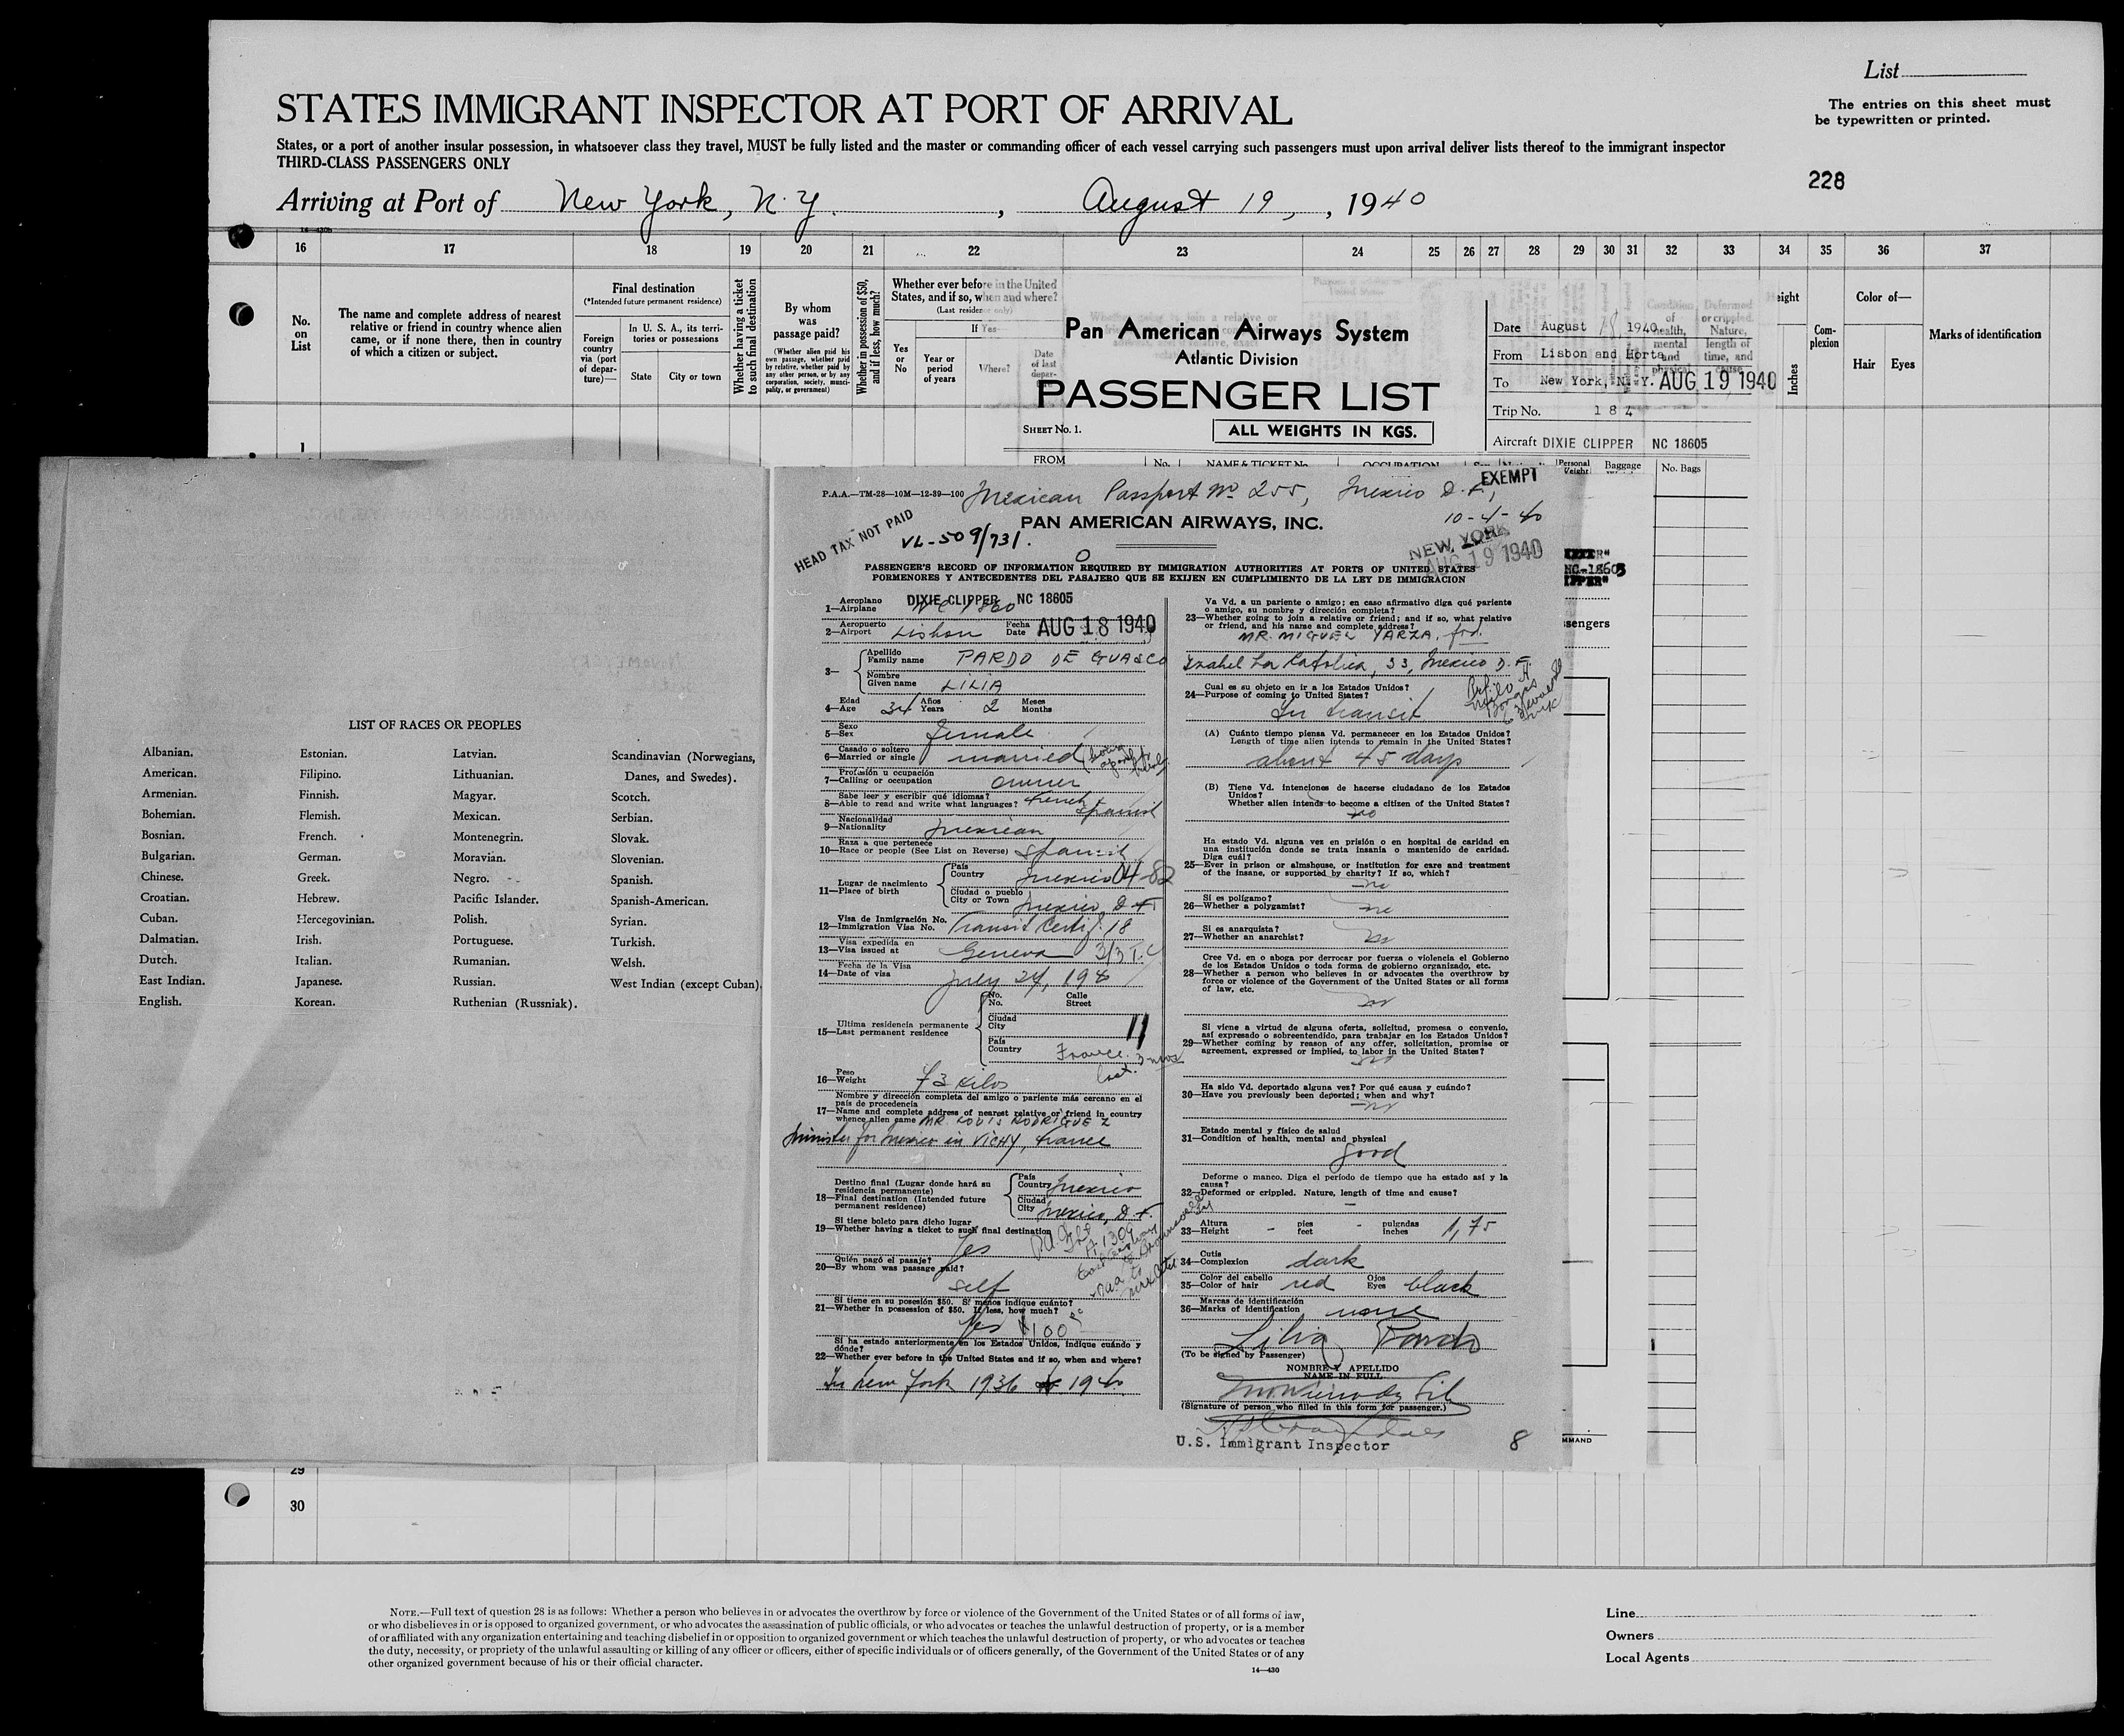 List
STATES IMMIGRANT INSPECTOR AT PORT OF ARRIVAL
The entries on this sheet must
be typewritten or printed.
States, or a port of another insular possession, in whatsoever class they travel, MUST be fully listed and the master or commanding officer of each vessel carrying such passengers must upon arrival deliver lists thereof to the immigrant inspector
THIRD-CLASS PASSENGERS ONLY
228
Arriving at Port of New York, N.Y., August 19, , 1940
16 17 18 19 20 21 22 23 24 25 26 27 28 29 30 31 32 33 34 35 36 37
No. on List
The name and complete address of nearest
relative or friend in country whence alien
came, or if none there, then in country
of which a citizen or subject.
Final destination
(*Intended future permanent residence)
Foreign country via (port of departure)—
In U. S. A., its territories or possessions
State City or town
Whether having a ticket to such final destination
By whom was passage paid?
(Whether alien paid his own passage, whether paid by relative, whether paid by any other person, or by any corporation, society, municipality, or government)
Whether in possession of $50, and if less, how much?
Whether ever before in the United
States, and if so, when and where?
(Last residence only)
If Yes—
Yes or No
Year or period of years
Where?
Date of last
Condition of health, mental and physical
Deformed or crippled. Nature, length of time, and cause
Inches
Complexion
Color of—
Hair Eyes
Marks of identification
Pan American Airways System
Atlantic Division
PASSENGER LIST
SHEET No. 1.
ALL WEIGHTS IN KGS.
Date August 18 1940
From Lisbon and Horta
To New York, N. Y. AUG 19 1940
Trip No. 184
Aircraft DIXIE CLIPPER NC 18605
1
FROM No. NAME & TICKET No. OCCUPATION Personal Weight Baggage No. Bags
LIST OF RACES OR PEOPLES
Albanian.
American.
Armenian.
Bohemian.
Bosnian.
Bulgarian.
Chinese.
Croatian.
Cuban.
Dalmatian.
Dutch.
East Indian.
English.
Estonian.
Filipino.
Finnish.
Flemish.
French.
German.
Greek.
Hebrew.
Hercegovinian.
Irish.
Italian.
Japanese.
Korean.
Latvian.
Lithuanian.
Magyar.
Mexican.
Montenegrin.
Moravian.
Negro.
Pacific Islander.
Polish.
Portuguese.
Rumanian.
Russian.
Ruthenian (Russniak).
Scandinavian (Norwegians,
Danes, and Swedes).
Scotch.
Serbian.
Slovak.
Slovenian.
Spanish.
Spanish-American.
Syrian.
Turkish.
Welsh.
West Indian (except Cuban).
P.A.A.—TM-28—10M—12-39—100 Mexican Passport No 255, Mexico D.F.,
EXEMPT
10-4-40
HEAD TAX NOT PAID
VL-509/731.
PAN AMERICAN AIRWAYS, INC.
NEW YORK
AUG 19 1940
PASSENGER'S RECORD OF INFORMATION REQUIRED BY IMMIGRATION AUTHORITIES AT PORTS OF UNITED STATES
PORMENORES Y ANTECEDENTES DEL PASAJERO QUE SE EXIJEN EN CUMPLIMIENTO DE LA LEY DE IMMIGRACION
Aeroplano
1—Airplane DIXIE CLIPPER NC 18605
Aeropuerto
2—Airport Lisbon Fecha Date AUG 18 1940
3— Apellido
Family name PARDO DE GUASCO
Nombre
Given name LILIA
Edad
4—Age 34 Años Years 2 Meses Months
Sexo
5—Sex female
Casado o soltero
6—Married or single married
Profesión u ocupación
7—Calling or occupation owner
Sabe leer y escribir qué idiomas?
8—Able to read and write what languages? french spanish
Nacionalidad
9—Nationality mexican
Raza a que pertenece
10—Race or people (See List on Reverse) spanish
Lugar de nacimiento
11—Place of birth
País
Country Mexico 04-82
Ciudad o pueblo
City or Town Mexico, D.F.
Visa de Inmigración No.
12—Immigration Visa No. Transit Certif. 18
Visa expedida en
13—Visa issued at Geneva 3/3 T.C
Fecha de la Visa
14—Date of visa July 24, 1940
Ultima residencia permanente
15—Last permanent residence
No. Calle
No. Street
Ciudad
City
País
Country France. 3 mos
last.
Peso
16—Weight 73 kilos
Nombre y dirección completa del amigo o pariente más cercano en el
país de procedencia
17—Name and complete address of nearest relative or friend in country
whence alien came MR. LOUIS RODRIGUEZ
Minister for Mexico in VICHY, france
Destino final (Lugar donde hará su
residencia permanente)
18—Final destination (Intended future
permanent residence)
País
Country Mexico
Ciudad
City Mexico, D.F.
Si tiene boleto para dicho lugar
19—Whether having a ticket to such final destination
Yes
Quién pagó el pasaje?
20—By whom was passage paid?
self
Si tiene en su posesión $50. Si menos indique cuánto?
21—Whether in possession of $50. If less, how much?
Yes $100
Si ha estado anteriormente en los Estados Unidos, indique cuándo y
dónde?
22—Whether ever before in the United States and if so, when and where?
In New York 1936 1940.
Va Vd. a un pariente o amigo; en caso afirmativo diga qué pariente
o amigo, su nombre y dirección completa?
23—Whether going to join a relative or friend; and if so, what relative
or friend, and his name and complete address?
MR. MIGUEL YARZA, frd.
Izabel La Catolica, 33, Mexico D.F.
Cual es su objeto en ir a los Estados Unidos?
24—Purpose of coming to United States?
In transit
(A) Cuánto tiempo piensa Vd. permanecer en los Estados Unidos?
Length of time alien intends to remain in the United States?
about 45 days
(B) Tiene Vd. intenciones de hacerse ciudadano de los Estados
Unidos?
Whether alien intends to become a citizen of the United States?
no
Ha estado Vd. alguna vez en prisión o en hospital de caridad en
una institución donde se trata insania o mantenido de caridad.
Diga cuál?
25—Ever in prison or almshouse, or institution for care and treatment
of the insane, or supported by charity? If so, which?
no
Si es polígamo?
26—Whether a polygamist? no
Si es anarquista?
27—Whether an anarchist? no
Cree Vd. en o aboga por derrocar por fuerza o violencia el Gobierno
de los Estados Unidos o toda forma de gobierno organizado, etc.
28—Whether a person who believes in or advocates the overthrow by
force or violence of the Government of the United States or all forms
of law, etc.
no
Si viene a virtud de alguna oferta, solicitud, promesa o convenio,
así expresado o sobreentendido, para trabajar en los Estados Unidos?
29—Whether coming by reason of any offer, solicitation, promise or
agreement, expressed or implied, to labor in the United States?
no
Ha sido Vd. deportado alguna vez? Por qué causa y cuándo?
30—Have you previously been deported; when and why?
no
Estado mental y físico de salud
31—Condition of health, mental and physical
good
Deforme o manco. Diga el período de tiempo que ha estado así y la
causa?
32—Deformed or crippled. Nature, length of time and cause?
—
Altura pies pulgadas
33—Height - feet - inches 1,75
Cutis
34—Complexion dark
Color del cabello Ojos
35—Color of hair red Eyes black
Marcas de identificación
36—Marks of identification none
Lilia Pardo
(To be signed by Passenger)
NOMBRE Y APELLIDO
NAME IN FULL
(Signature of person who filled in this form for passenger.)
U.S. Immigrant Inspector 8
29
30
NOTE.—Full text of question 28 is as follows: Whether a person who believes in or advocates the overthrow by force or violence of the Government of the United States or of all forms of law,
or who disbelieves in or is opposed to organized government, or who advocates the assassination of public officials, or who advocates or teaches the unlawful destruction of property, or is a member
of or affiliated with any organization entertaining and teaching disbelief in or opposition to organized government or which teaches the unlawful destruction of property, or who advocates or teaches
the duty, necessity, or propriety of the unlawful assaulting or killing of any officer or officers, either of specific individuals or of officers generally, of the Government of the United States or of any
other organized government because of his or their official character.
14—430
Line
Owners
Local Agents